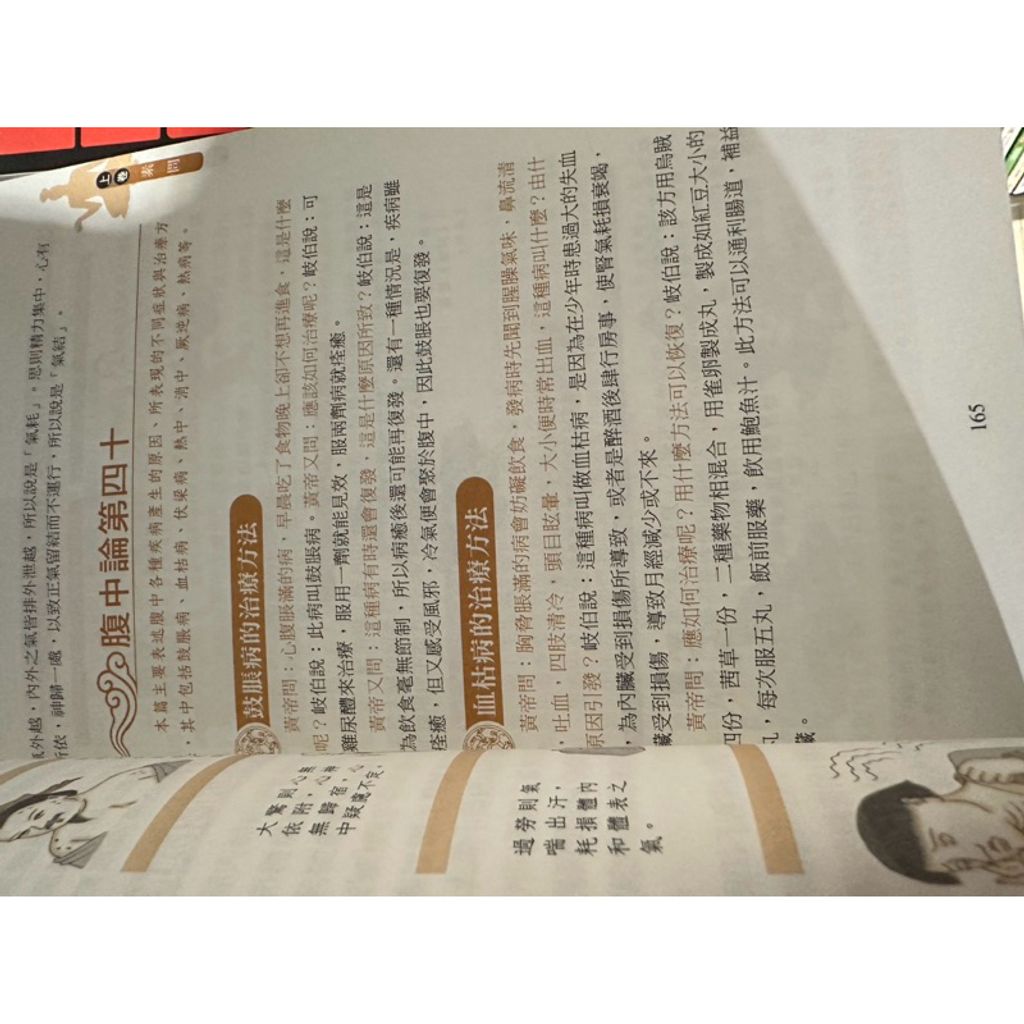 上卷
素問
氣外越，內外之氣皆排外泄越，所以說是「氣耗」。思則精力集中，心有
所依，神歸一處，以致正氣留結而不運行，所以說是「氣結」。
腹中論第四十
本篇主要表述腹中各種疾病產生的原因、所表現的不同症狀與治療方
，其中包括鼓脹病、血枯病、伏梁病、熱中、消中、厥逆病、熱病等。
鼓脹病的治療方法
黃帝問：心腹脹滿的病，早晨吃了食物晚上卻不想再進食，這是什麼
呢？岐伯說：此病叫鼓脹病。黃帝又問：應該如何治療呢？岐伯說：可
雞尿醴來治療，服用一劑就能見效，服兩劑病就痊癒。
黃帝又問：這種病有時還會復發，這是什麼原因所致？岐伯說：這是
為飲食毫無節制，所以病癒後還可能再復發。還有一種情況是，疾病雖
痊癒，但又感受風邪，冷氣便會聚於腹中，因此鼓脹也要復發。
血枯病的治療方法
黃帝問：胸脅脹滿的病會妨礙飲食，發病時先聞到腥臊氣味，鼻流清
，吐血，四肢清冷，頭目眩暈，大小便時常出血，這種病叫什麼？由什
原因引發？岐伯說：這種病叫做血枯病，是因為在少年時患過大的失血
，為內臟受到損傷所導致，或者是醉酒後肆行房事，使腎氣耗損衰竭，
藏受到損傷，導致月經減少或不來。
黃帝問：應如何治療呢？用什麼方法可以恢復？岐伯說：該方用烏賊
四份，茜草一份，二種藥物相混合，用雀卵製成丸，製成如紅豆大小的
丸，每次服五丸，飯前服藥，飲用鮑魚汁。此方法可以通利腸道，補益
臟。
165
大驚則心無
依附，心神
無歸宿，心
中疑慮不定。
過勞則氣
喘出汗，
耗損體內
和體表之
氣。